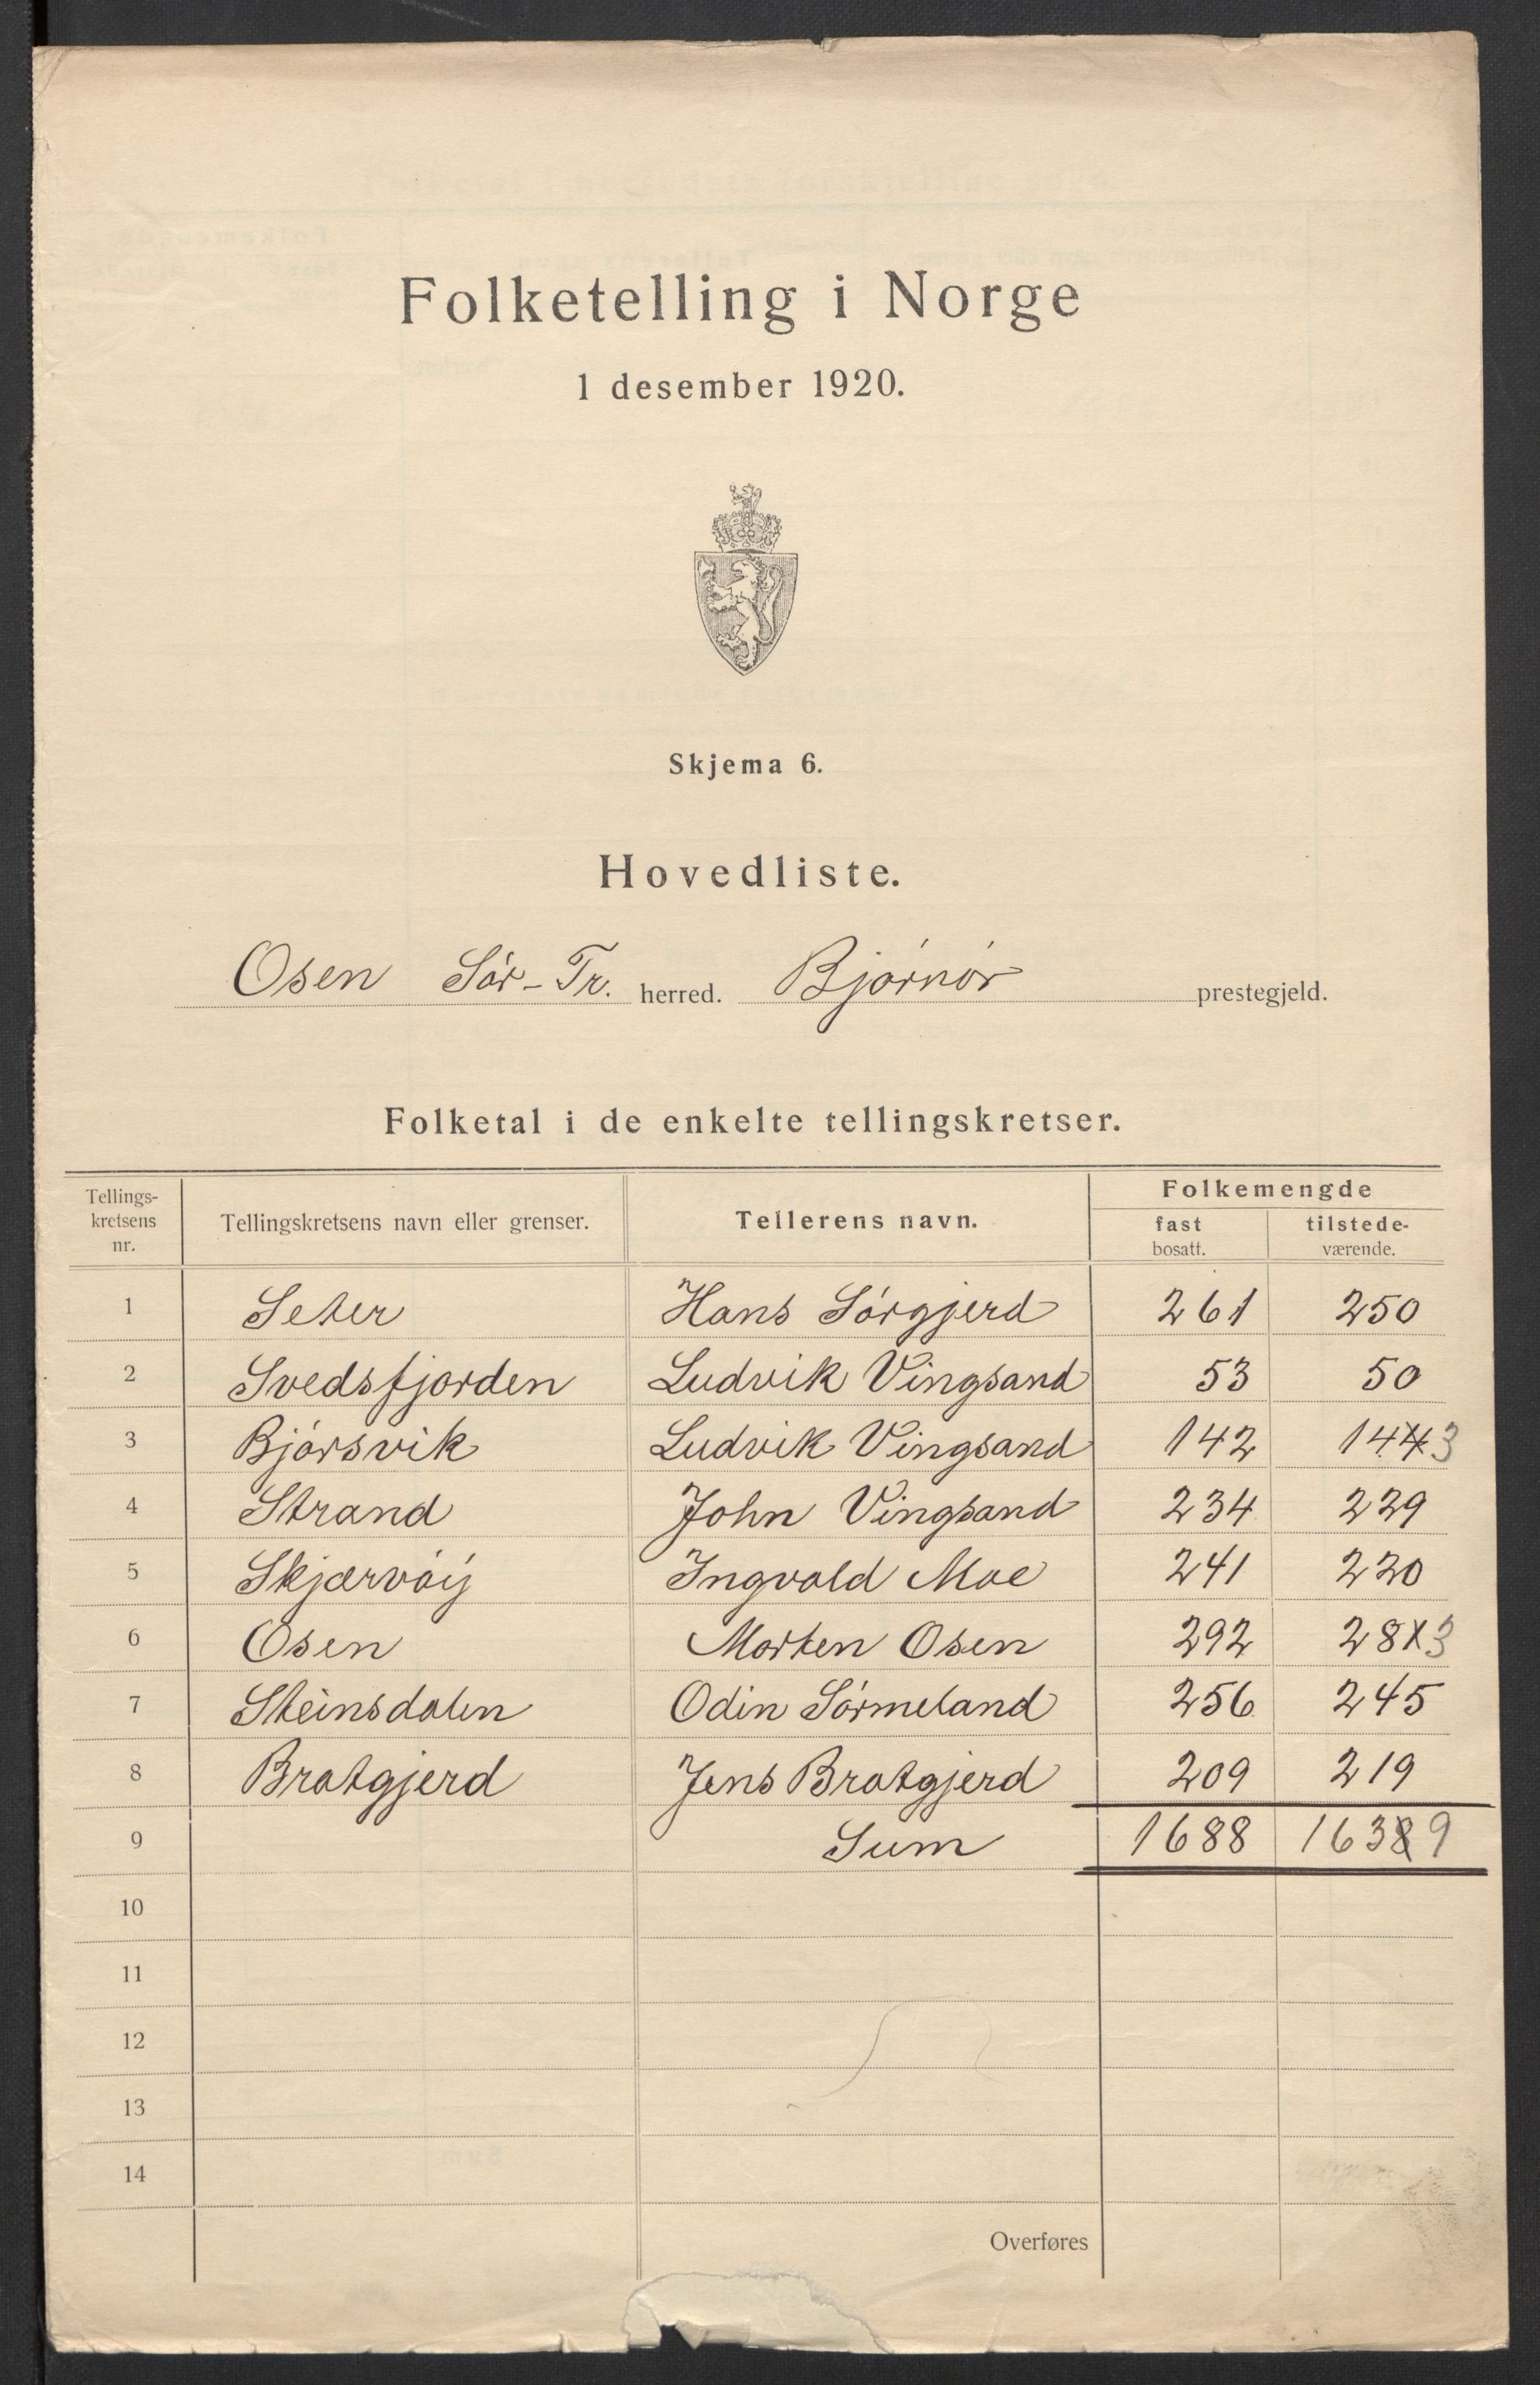 Folketelling i Norge
1 desember 1920.
Skjema 6.
Hovedliste.
Osen Sór-Tr. herred. Bjórnór prestegjeld.
Folketal i de enkelte tellingskretser.
Tellings-kretsens nr. Tellingskretsens navn eller grenser. Tellerens navn. Folkemengde fast bosatt. tilstede-værende.
1 Seter Hans Sórgjerd 261 250
2 Svedsfjorden Ludvik Vingsand 53 50
3 Bjórsvik Ludvik Vingsand 142 1443
4 Strand John Vingsand 234 229
5 Skjærvóy Ingvald Moe 241 220
6 Osen Morten Osen 292 2813
7 Steinsdalen Odin Sórmeland 256 245
8 Bratgjerd Jens Bratgjerd 209 219
9 Sum 1688 16389
10
11
12
13
14
Overføres